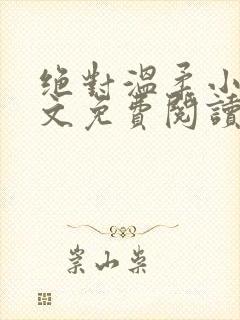 絕對溫柔小
文免費閱讀
崇山柴